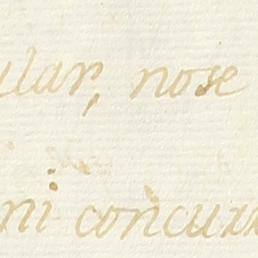 ular, nose
ni concur